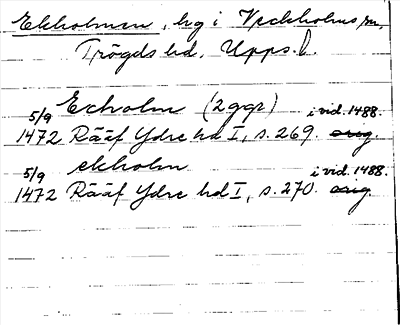 Ekholmen, hg i Veckholms sn,
Trögds hd, Upps. l.
Echolm (2ggr) i vid. 1488.
5/9 1472 Rääf Ydre hd I, s. 269. orig.
ekholm i vid. 1488.
5/9 1472 Rääf Ydre hd I, s. 270. orig.